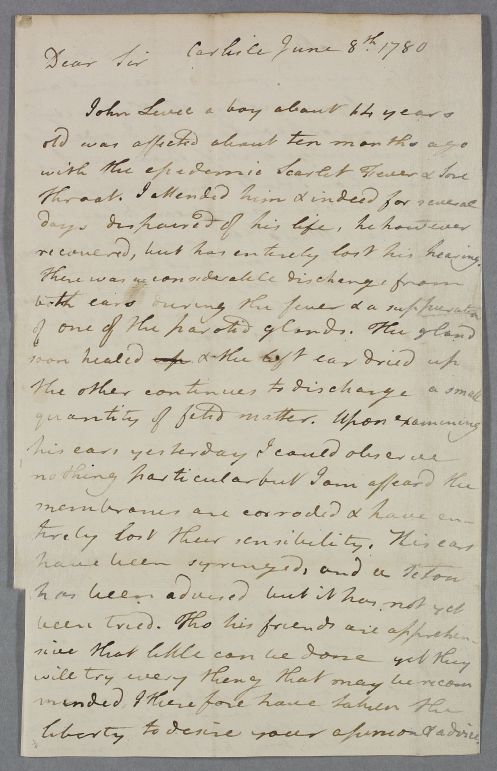 Dear Sir Carlisle June 8th 1780
John Levee a boy about 14 years
old was affected about ten months ago
with the epedemic Scarlet Fever & Sore
throat. I attended him & indeed for several
days despaired of his life, he however
recovered, but has entirely lost his hearing.
there was a considerable discharge from
both ears during the fever & a suppuration
of one of the parotid glands. The gland
soon healed & the left ear dried up
the other continues to discharge a small
quantity of fetid matter. Upon examining
his ears yesterday I could observe
nothing particular but I am affeard the
membranes are corroded & have en-
tirely lost their sensibility. His ears
have been syringed, and a Seton
has been advised but it has not yet
been tried. Tho his friends are apprehen-
sive that little can be done yet they
will try every thing that may be recom
mended, I therefore have taken the
liberty to desire your opinion & advice